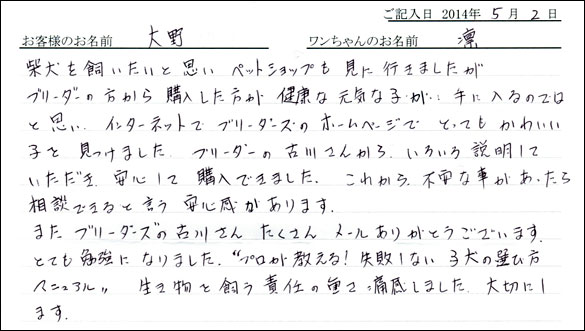 ご記入日 2014年 5月 2日
お客様のお名前 大野 ワンちゃんのお名前 凛
柴犬を飼いたいと思い ペットショップも 見に行きましたが
ブリーダーの方から 購入した方が 健康な元気な子が‥手に入るのでは
と思い、インターネットで ブリーダーズのホームページで とってもかわいい
子を 見つけました。ブリーダーの古川さんから、いろいろ説明して
いただき、安心して 購入できました。これから、不安な事があったら
相談できると言う 安心感が あります。
また ブリーダーズの古川さん たくさん メールありがとうございます。
とても勉強になりました。"プロが教える!失敗しない 子犬の選び方
マニュアル" 生き物を飼う責任の重さ痛感しました。大切にし
ます。